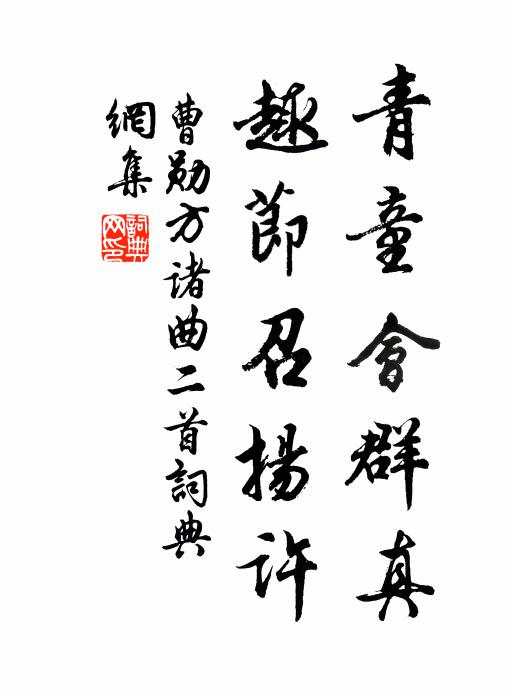 青童會群真
趣節召揚許
曹勛方诸曲二首詞典
網集
詞典網印